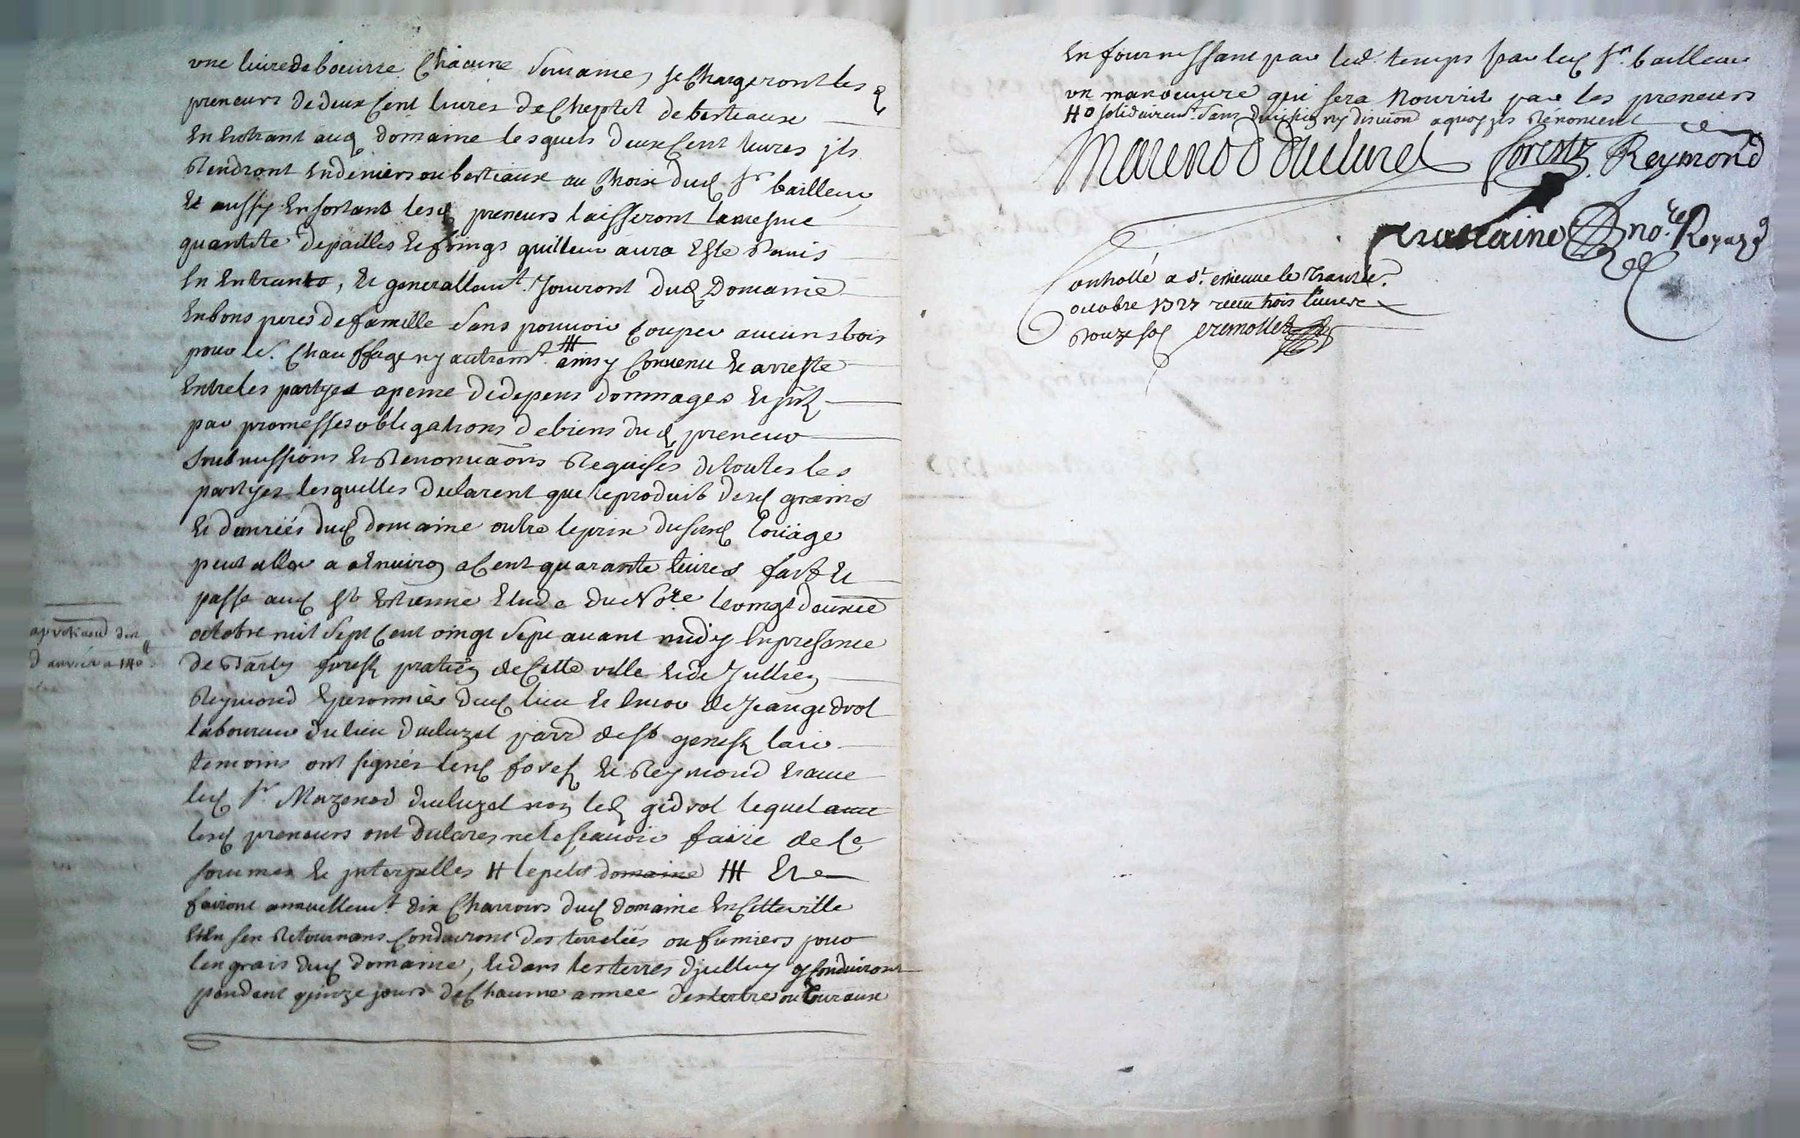 une livre de beurre chacune semaine, se chargeront les
preneurs de deux cent livres de cheptel de bestiaux
en entrant aud domaine lesquels deux cent livres ils
rendront en deniers ou bestiaux au choix dud Sr bailleur
et aussy en sortant lesd preneurs laisseront la mesme
quantite de pailles et foings quil leur aura este remis
en entrant, et generallemt. Jouiront dud Domaine
en bons peres de famille sans pouvoir couper aucuns bois
pour le. chauffage ny autremt. ++ ainsy convenu et arreste
entre les partyes a peine de depens dommages et
par promesses obligations de biens dud preneur
soubmissions et renonciaons requises de toutes les
partyes lesquelles declarent que le produit desd grains
et denrées dud domaine outre le prix dususd louage
peut aller a environ a cent quarante livres fait et
passe aud St Estienne Etude du Nore le vingt deuxie
octobre mil sept cent vingt sept avant midy en presence
de praticien de cette ville et de Jullien
Reymond eperonnier dud lieu et encor de Jean gidrol
laboureur du lieu ducluzel parr de St genest
temoins ont signés lesd forest et Reymond avec
led Sr Mazenod ducluzel non led gidrol lequel avec
lesd preneurs ont declarés ne le scavoir faire de ce
sommes et interpelles H le petit domaine HH Et
fairont annuellemt. dix charrois dud domaine en cette ville
et en sen retournans conduiront des terrelées ou fumiers pour
lengrais dud domaine, et dans les terres djcelluy y conduiront
pendent quinze jours de chacune annee des terres ou
approuvant
a 140
en fournissant par led. temps par led Sr. bailleur
un manoeuvre qui sera nourrit par les preneurs
HO solidairemt. sans division ny discution a quoy ils renoncent
Mazenod duclusel forest Reymond
no.re Royal
Controllé a St. etienne le trente.
octobre 1727 receu trois livres
douze sols